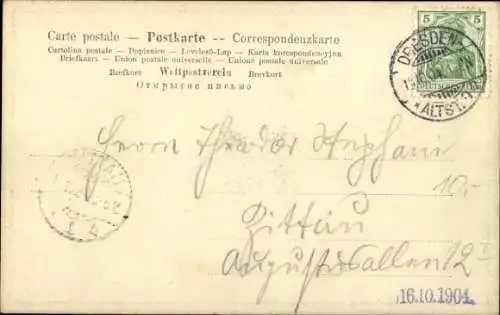 Carte postale — Postkarte -- Correspondenzkarte
Cartolina postale — Dopisnice — Levelező-Lap — Karta korespondencyjna
Briefkaart — Union postale universelle — Unione postale universale
Brefkort Weltpostverein Brevkort
Открытое письмо
5
DRESDEN
*ALTST.
Herrn Theodor Stephani
10,-
Zittau
Augustusallee 12 I
16.10.1904.